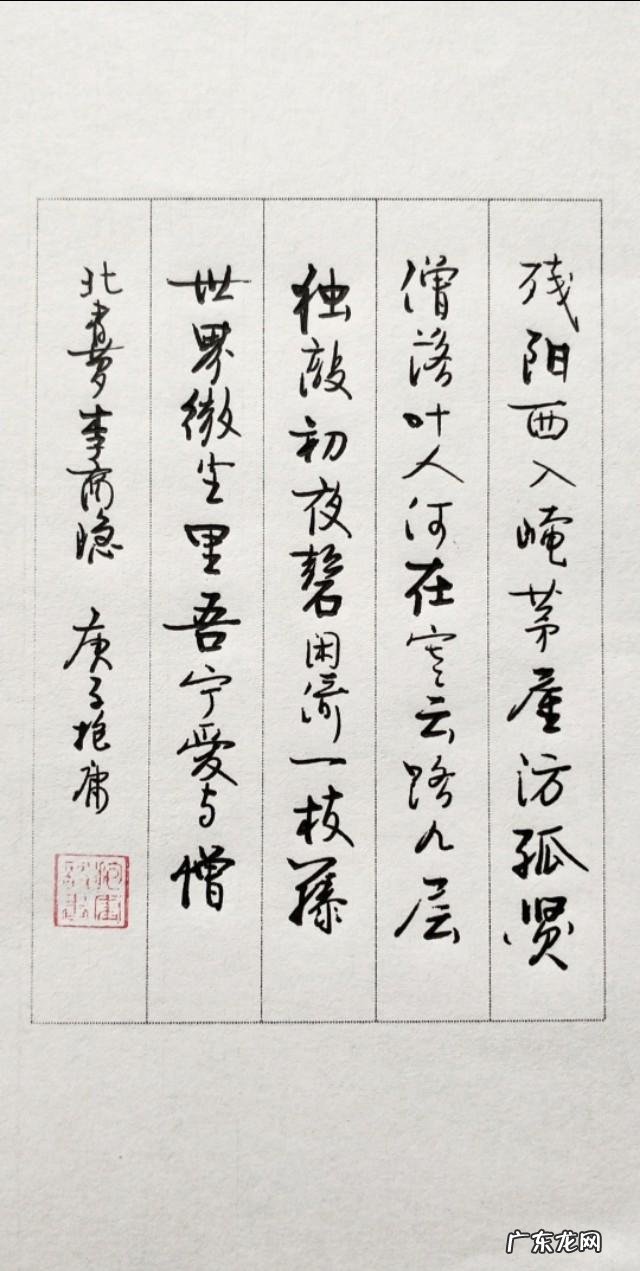 残阳西入崦茅屋访孤贤
僧落叶人何在寒云路几层
独敲初夜磬闲倚一枝藤
世界微尘里吾宁爱与憎
北青萝李商隐 庚子抱庸
广东龙网